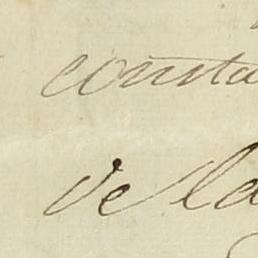 consta
de la